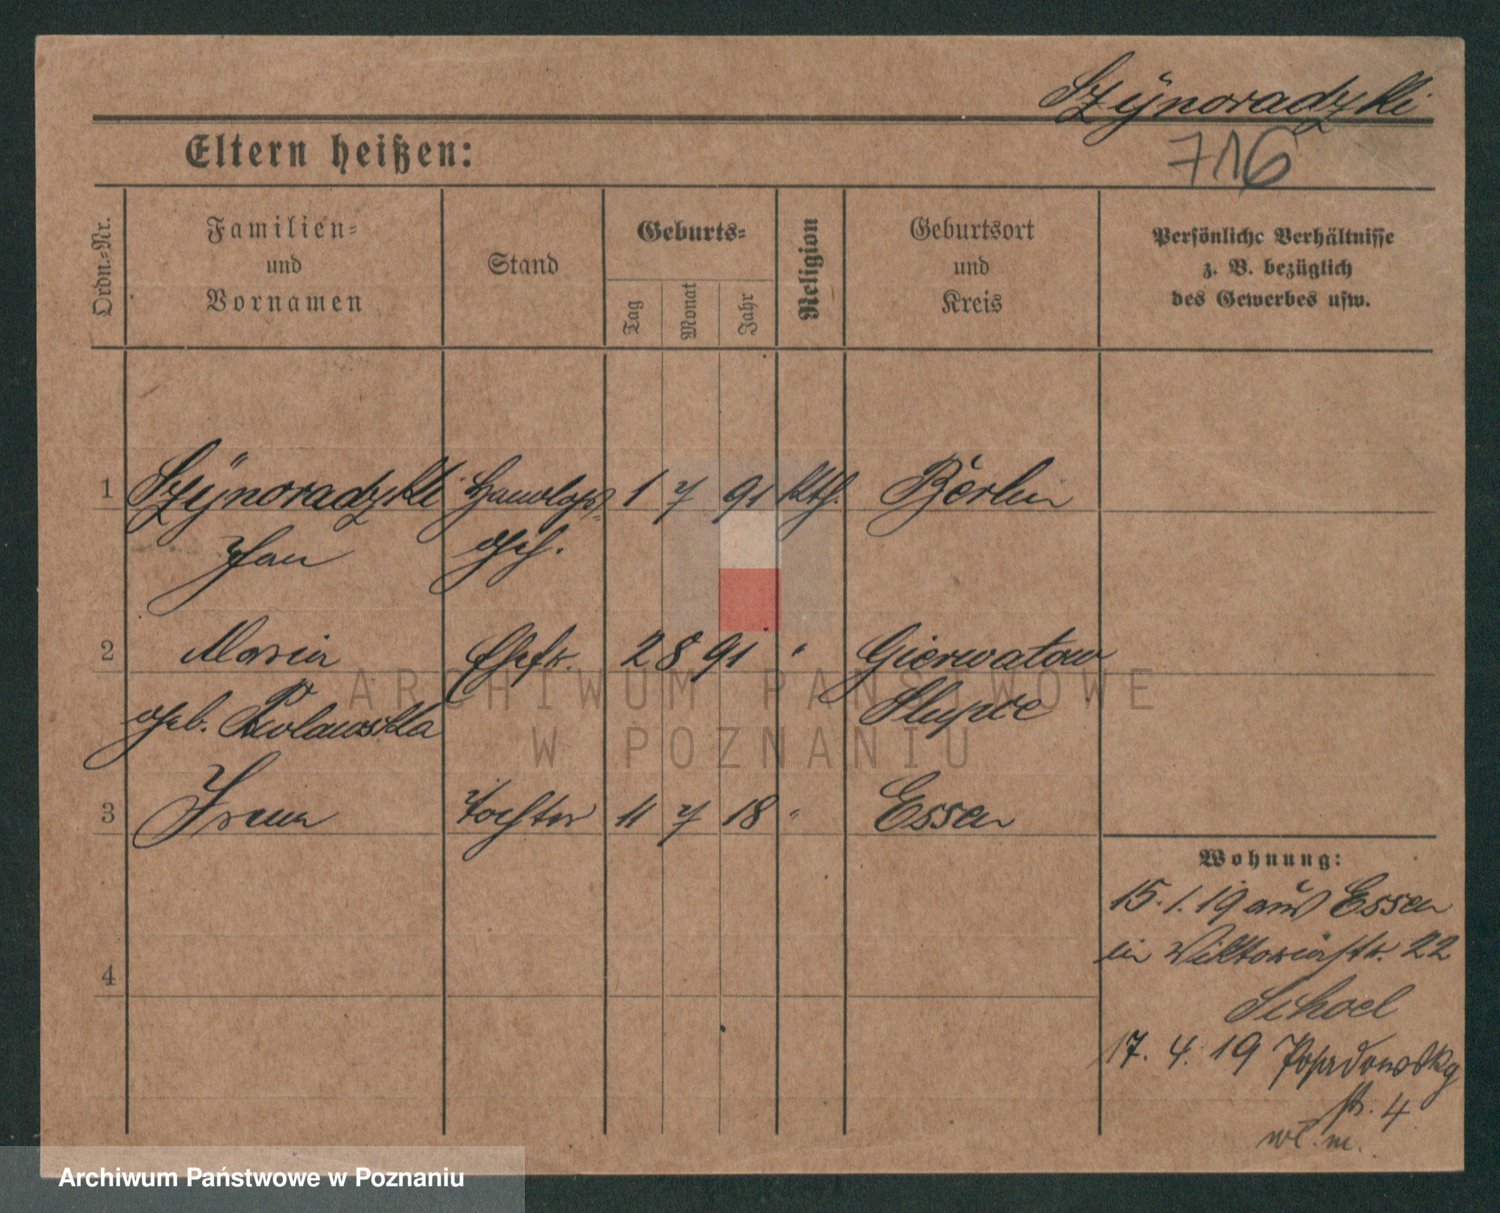 Szÿnoradzki
716
Eltern heißen:
Ordn.-Nr.
Familien-
und
Vornamen
Stand
Geburts-
Tag
Monat
Jahr
Religion
Geburtsort
und
Kreis
Persönliche Verhältnisse
z. B. bezüglich
des Gewerbes usw.
1 Szÿnoradzki Handlgs- 1 7 91 kth. Berlin
Jan Geh.
2 Maria Ehefr. 2 8 91 " Gierwatow
geb. Slupce
3 Irena Tochter 11 7 18 " Essen
4
Wohnung:
15. 1. 19 aus Essen
in Viktoriastr. 22
17. 4. 19 Posadowsky
str. 4
ARCHIWUM PAŃSTWOWE
W POZNANIU
Archiwum Państwowe w Poznaniu